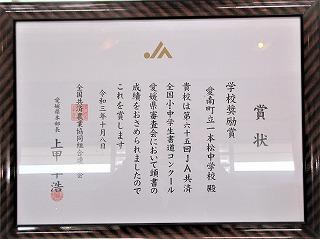 JA
賞状
学校奨励賞
愛南町立一本松中学校殿
貴校は第六十五回JA共済
全国小・中学生書道コンクール
愛媛県審査会において頭書の
成績をおさめられましたので
これを賞します
令和三年十月八日
全国共済農業協同組合連合会
愛媛県本部長 上甲 浩